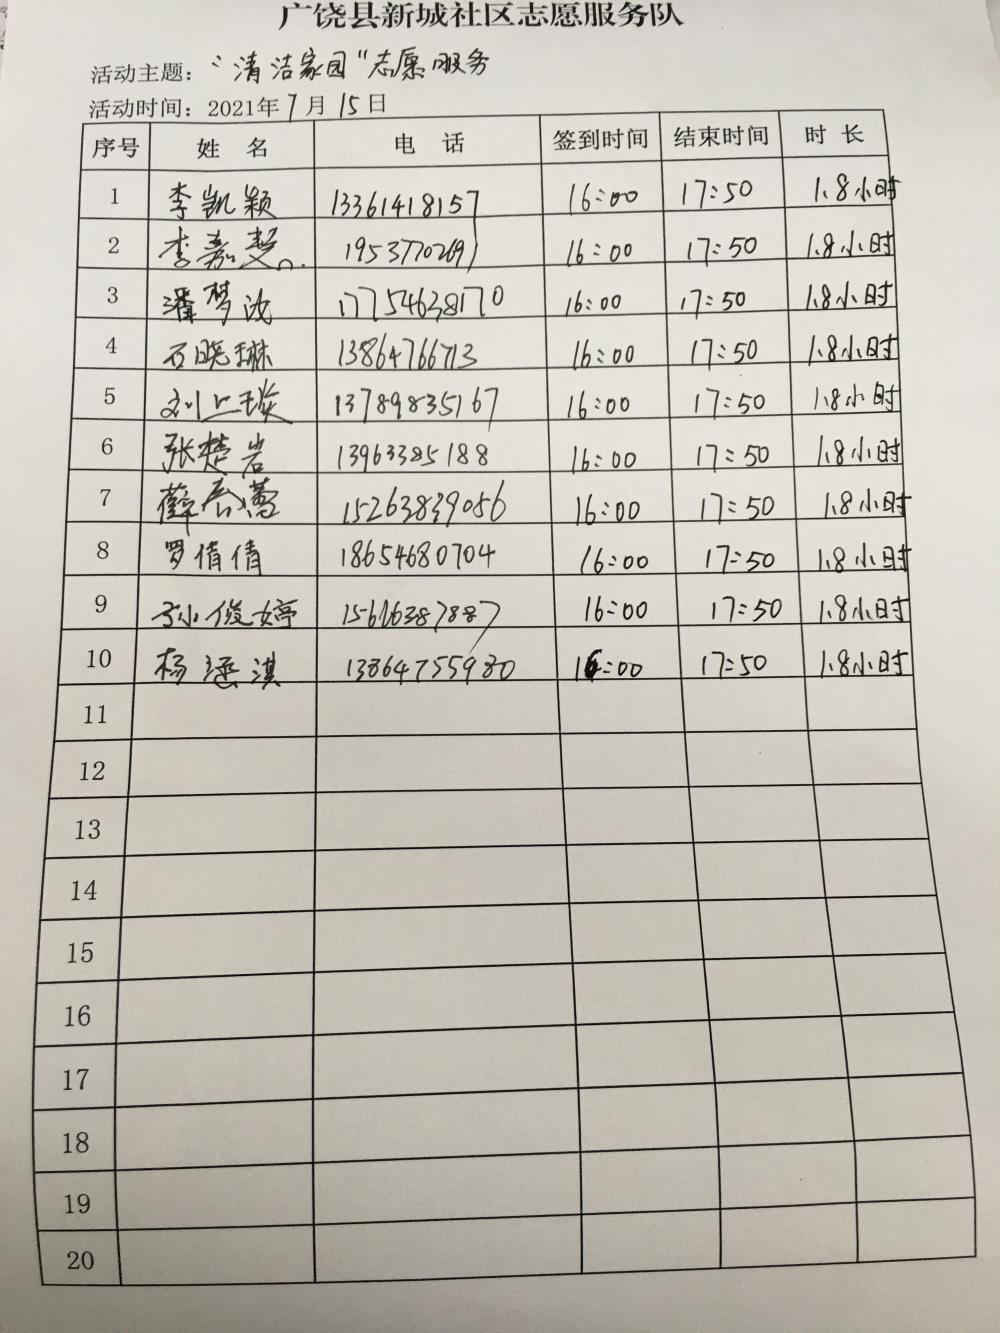 广饶县新城社区志愿服务队
活动主题：“清洁家园”志愿服务
活动时间：2021年7月15日
序号 姓名 电话 签到时间 结束时间 时长
1 李凯颖 13361418157 16:00 17:50 1.8小时
2 李嘉慧 19537702691 16:00 17:50 1.8小时
3 潘梦 17754638170 16:00 17:50 1.8小时
4 石晓琳 13864766713 16:00 17:50 1.8小时
5 刘上琰 13789835167 16:00 17:50 1.8小时
6 张楚岩 13963385188 16:00 17:50 1.8小时
7 薛 15263839056 16:00 17:50 1.8小时
8 罗倩倩 18654680704 16:00 17:50 1.8小时
9 孙俊婷 16:00 17:50 1.8小时
10 杨 淇 13864755980 16:00 17:50 1.8小时
11
12
13
14
15
16
17
18
19
20